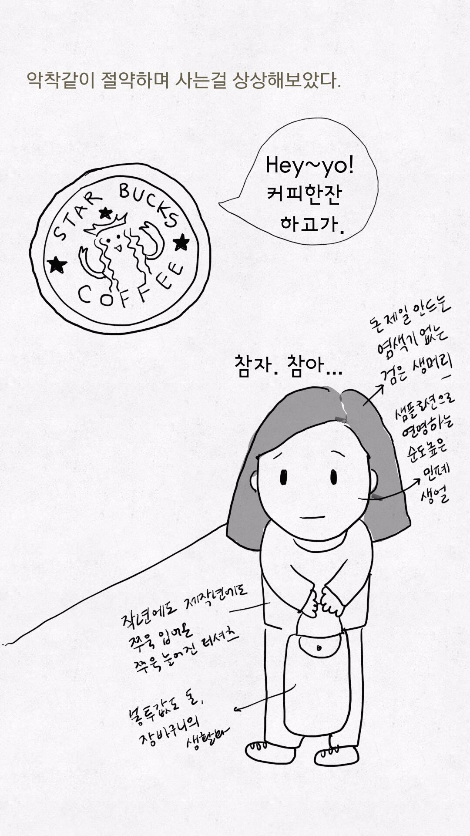 악착같이 절약하며 사는걸 상상해보았다.
STAR BUCKS
COFFEE
Hey~yo!
커피한잔
하고가.
참자. 참아...
돈 제일 안드는
염색기 없는
검은 생머리
샘플로션으로
연명하는
순도높은
민폐
생얼
작년에도 제작년에도
쭈욱 입어온
쭈욱 늘어진 티셔츠
봉투값도 돈,
장바구니의
생활화